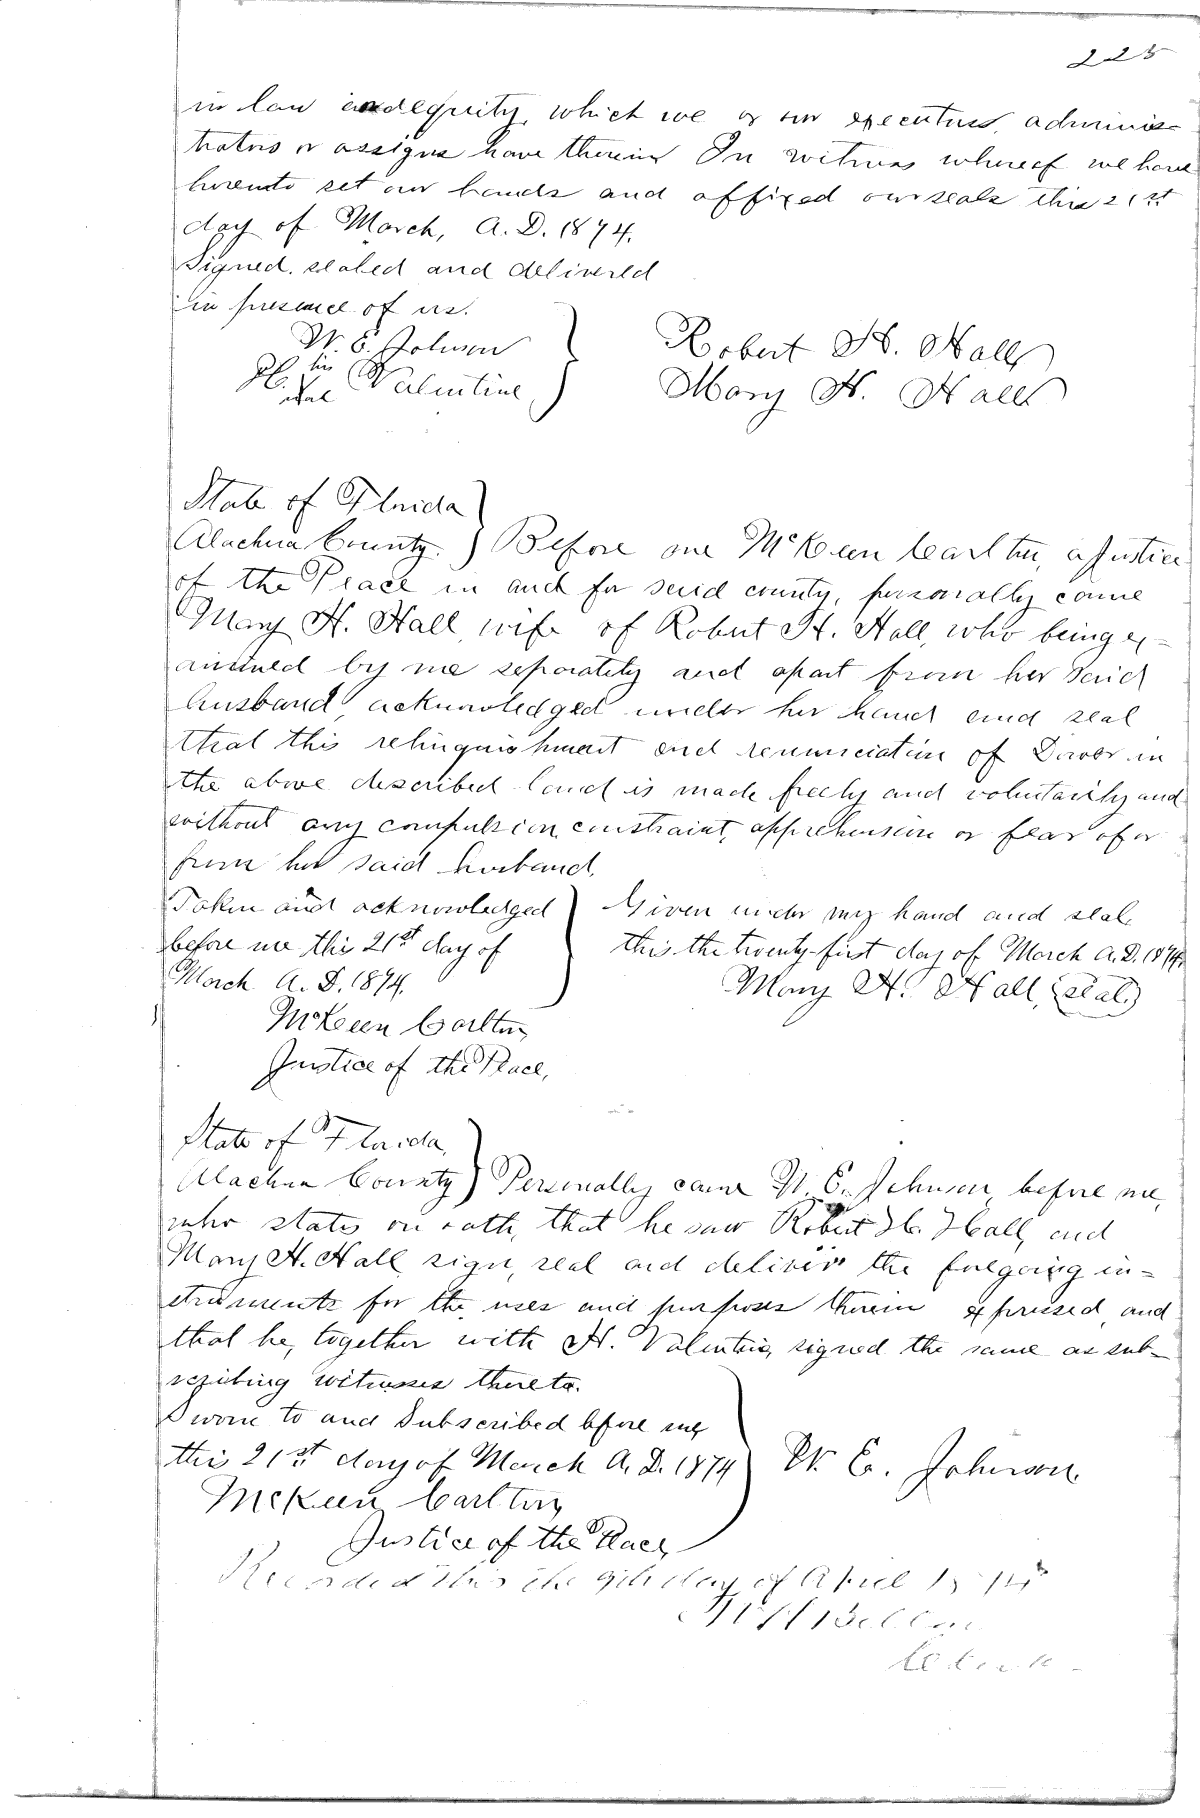 225
in law and equity, which we or our executors, adminis-
trators or assigns have therein In witness whereof we have
hereunto set our hands and affixed our seals this 21st
day of March, A.D. 1874.
Signed, sealed and delivered
in presence of us.
W. E. Johnson
his
H. Valentine
Robert H. Hall
Mary H. Hall
State of Florida
Alachua County. Before me McKeen Carlton, a Justice
of the Peace in and for said county, personally came
Mary H. Hall, wife of Robert H. Hall, who being ex-
amined by me separately and apart from her said
husband, acknowledged under her hand and seal
that this relinquishment and renunciation of Dower in
the above described land is made freely and voluntarily and
without any compulsion, constraint, apprehension or fear of or
from her said husband.
Taken and acknowledged
before me this 21st day of
March A. D. 1874.
McKeen Carlton,
Justice of the Peace,
Given under my hand and seal,
this the twenty-first day of March A.D. 1874.
Mary H. Hall, (seal.)
State of Florida,
Alachua County Personally came W. E. Johnson, before me,
who states on oath, that he saw Robert H. Hall, and
Mary H. Hall, sign, seal and deliver the foregoing in-
struments for the uses and purposes therein expressed, and
that he, together with H. Valentine, signed the same as sub-
scribing witnesses thereto.
Sworn to and Subscribed before me,
this 21st day of March A. D. 1874
McKeen Carlton,
Justice of the Peace,
W. E. Johnson.
Recorded this the 9th day of April 1874
Clerk